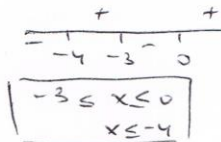 + +
- -4 -3 - 0
-3 ≤ x ≤ 0
x ≤ -4